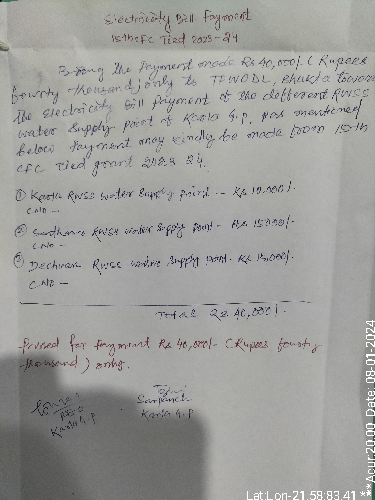 Electricity Bill Payment
15th CFC Tied 2023-24
Being the Payment made Rs 40,000/- (Rupees
fourty thousand) only to TPWODL, Bhukta towards
the Electricity Bill Payment of the different RWSS
water supply point of Kaola G.P. as mentioned
below Payment may kindly be made from 15th
CFC Tied grant 2023 24.
① Kaola RWSS water supply point - Rs 10,000/-
C.NO -
② RWSS water supply point - Rs 15000/-
C.NO -
③ RWSS water supply point - Rs 15,000/-
C.NO -
Total Rs 40,000/-
Passed for payment Rs 40,000/- (Rupees fourty
thousand) only.
PEO
Kaola G.P
Sarpanch
Kaola G.P
Lat:Lon-21.58:83.41 ***Acur:20.00 Date: 08-01-2024